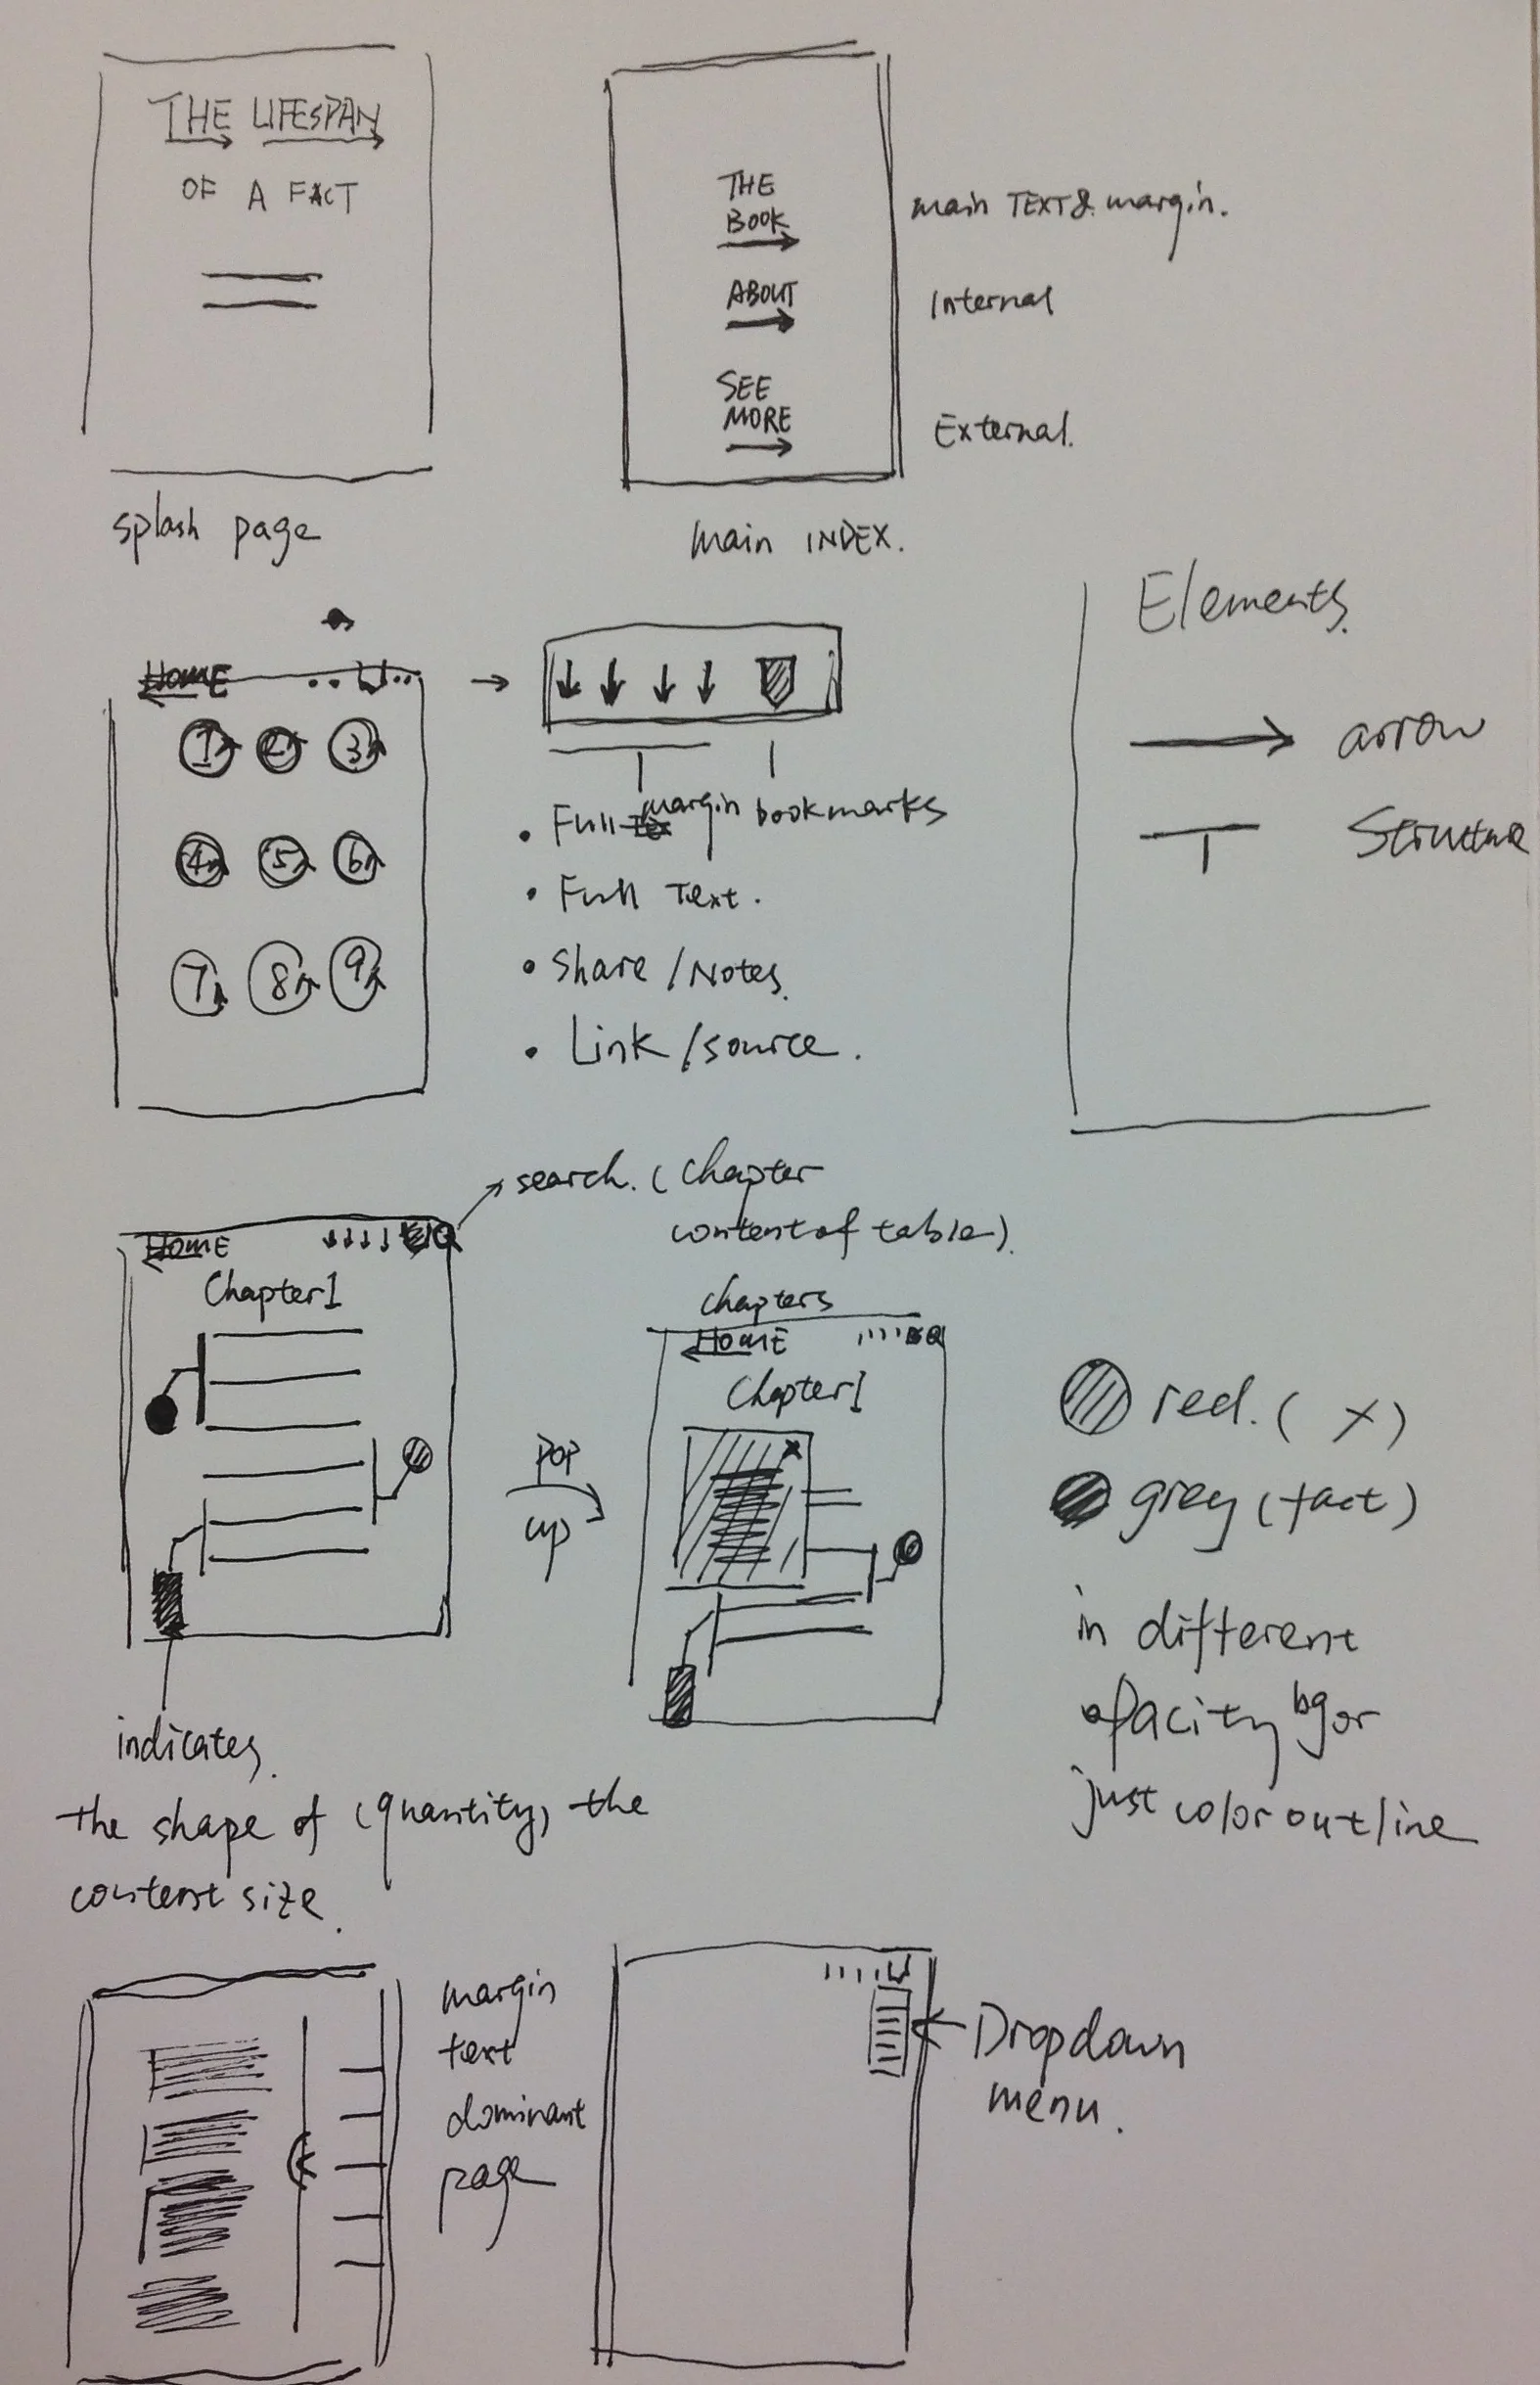 THE LIFESPAN
OF A FACT
splash page
THE
BOOK
ABOUT
SEE
MORE
main TEXT & margin.
Internal
External.
main INDEX.
HOME
1 2 3
4 5 6
7 8 9
• Full margin
bookmarks
• Full Text.
• Share / Notes.
• Link / source.
Elements.
arrow
Structure
search. ( Chapter
content of table).
HOME
Chapter 1
indicates.
the shape of (quantity) the
content size.
POP
up
chapters
HOME
Chapter 1
x
red. ( x )
grey (fact)
in different
opacity bg or
just color outline
margin
text
dominant
page
Dropdown
menu.